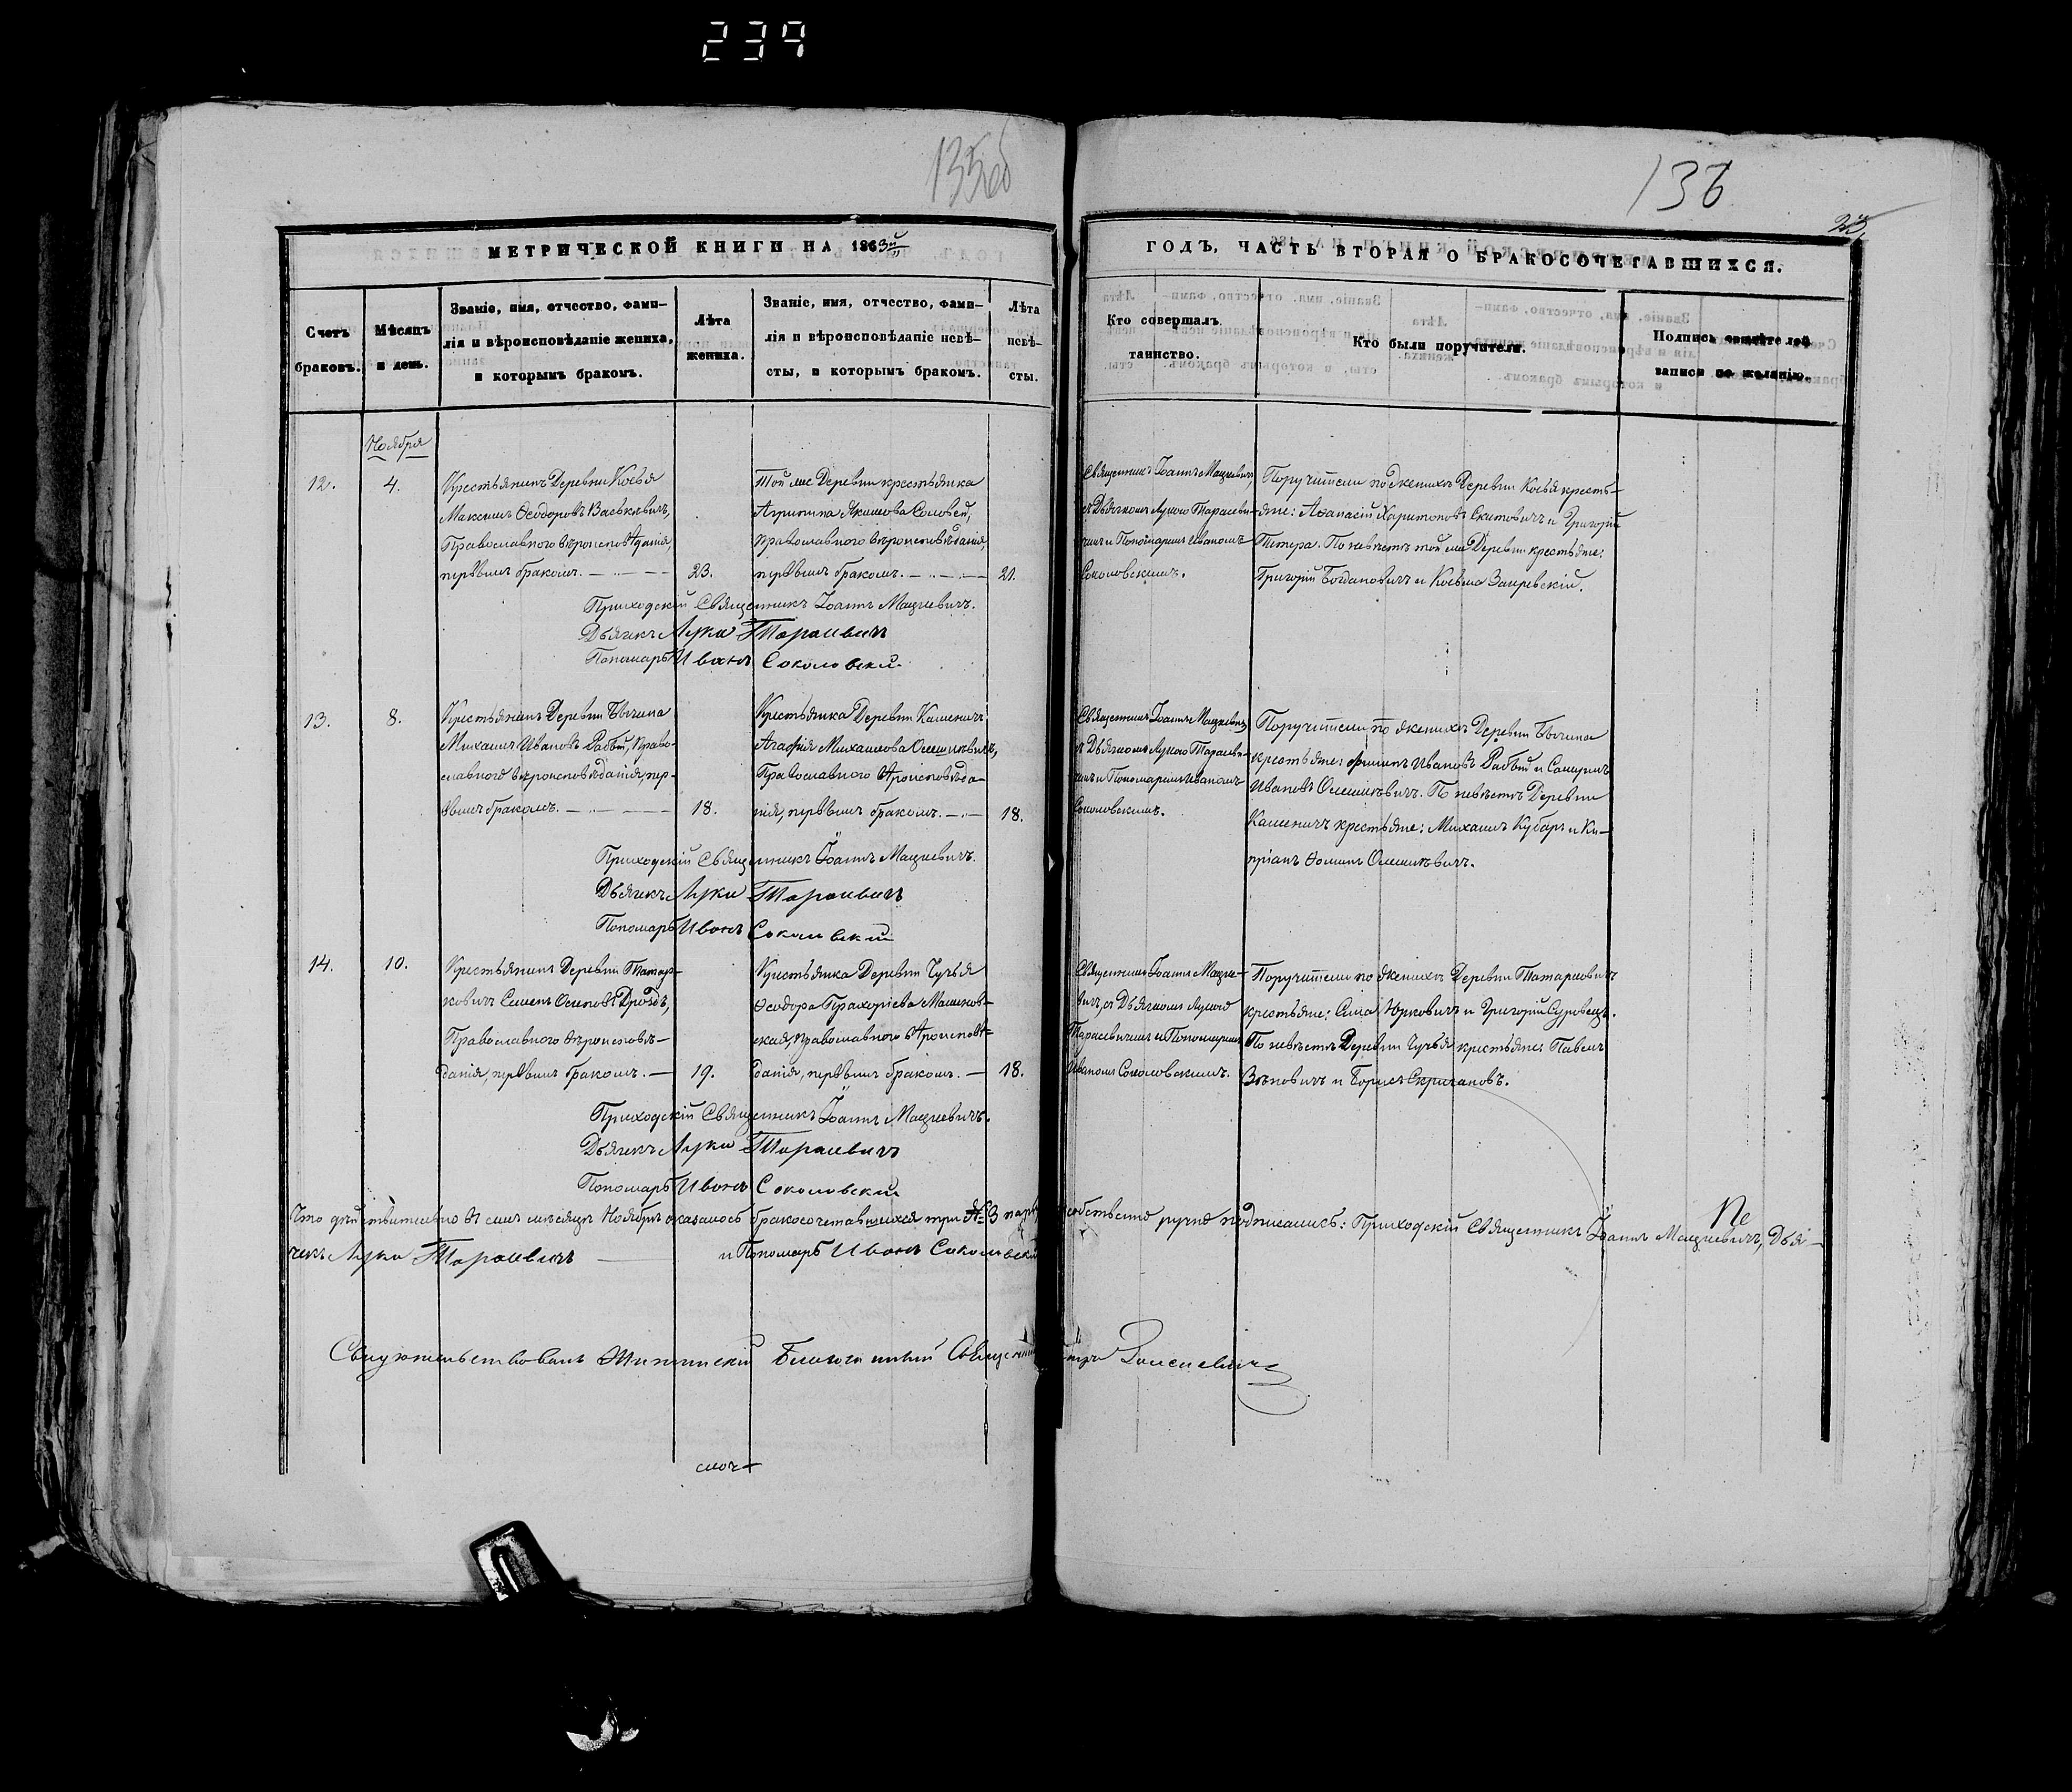 239
135об
136
23
МЕТРИЧЕСКОЙ КНИГИ НА 1863й
ГОДЪ, ЧАСТЬ ВТОРАЯ О БРАКОСОЧЕТАВШИХСЯ.
Счетъ браковъ.
Мѣсяцъ и день.
Званіе, имя, отчество, фами-
лія и вѣроисповѣданіе жениха,
и которымъ бракомъ.
Лѣта
жениха.
Званіе, имя, отчество, фами-
лія и вѣроисповѣданіе невѣ-
сты, и которымъ бракомъ.
Лѣта
невѣ-
сты.
Кто совершалъ
таинство.
Кто были поручители.
Подпись свидѣтелей
записи по желанію.
Ноября
12.
4.
Крестьянинъ Деревни Косья
Максимъ Ѳеодоровъ Васькевичъ,
Православнаго вѣроисповѣданія,
первымъ бракомъ.
23.
Той же Деревни крестьянка
Агрипина Якимова Соловей,
православнаго вѣроисповѣданія,
первымъ бракомъ.
21.
Священникъ Іоаннъ Мацкевичъ
съ Дьячкомъ Лукою Тарасеви-
чемъ и Пономаремъ Иваномъ
Соколовскимъ.
Поручители по женихѣ Деревни Косья кресть-
яне: Аѳанасій Харитоновъ и Григорій
Тетера. По невѣстѣ той же Деревни крестьяне:
Григорій Богдановичъ и Косьма
Приходскій Священникъ Іоаннъ Мацкевичъ.
Дьячекъ Лука Тарасевичъ
Пономарь Иванъ Соколовскій
13.
8.
Крестьянинъ Деревни Бычина
Михаилъ Ивановъ Рабый, Право-
славнаго вѣроисповѣданія, пер-
вымъ бракомъ.
18.
Крестьянка Деревни Каменичъ
Агафія Михаилова
Православнаго вѣроисповѣда-
нія, первымъ бракомъ.
18.
Священникъ Іоаннъ Мацкевичъ
съ Дьячкомъ Лукою Тарасеви-
чемъ и Пономаремъ Иваномъ
Соколовскимъ.
Поручители по женихѣ Деревни Бычина
крестьяне: Ивановъ Рабый и
Ивановъ По невѣстѣ Деревни
Каменичъ крестьяне: Михаилъ Кубаръ и Ки-
пріанъ Ѳоминъ
Приходскій Священникъ Іоаннъ Мацкевичъ.
Дьячекъ Лука Тарасевичъ
Пономарь Иванъ Соколовскій
14.
10.
Крестьянинъ Деревни Татар-
ковичъ Семенъ Осиповъ Дроздъ,
Православнаго вѣроисповѣ-
данія, первымъ бракомъ.
19.
Крестьянка Деревни Чучья
Ѳеодора Прахоріева
православнаго вѣроисповѣ-
данія, первымъ бракомъ.
18.
Священникъ Іоаннъ Мацке-
вичъ, съ Дьячкомъ Лукою
Тарасевичемъ и Пономаремъ
Иваномъ Соколовскимъ.
Поручители по женихѣ Деревни Татарковичъ
крестьяне: Сила Юрковичъ и Григорій Суровецъ.
По невѣстѣ Деревни Чучья крестьяне: Павелъ
и Борисъ
Приходскій Священникъ Іоаннъ Мацкевичъ.
Дьячекъ Лука Тарасевичъ
Пономарь Иванъ Соколовскій
Что дѣйствительно въ семъ мѣсяцѣ Ноябрѣ оказалось бракосочетавшихся три 3 пары собственно ручно подписались: Приходскій Священникъ Іоаннъ Мацкевичъ, Дья-
чекъ Лука Тарасевичъ и Пономарь Иванъ Соколовскій
Свидѣтельствовалъ Благочинный